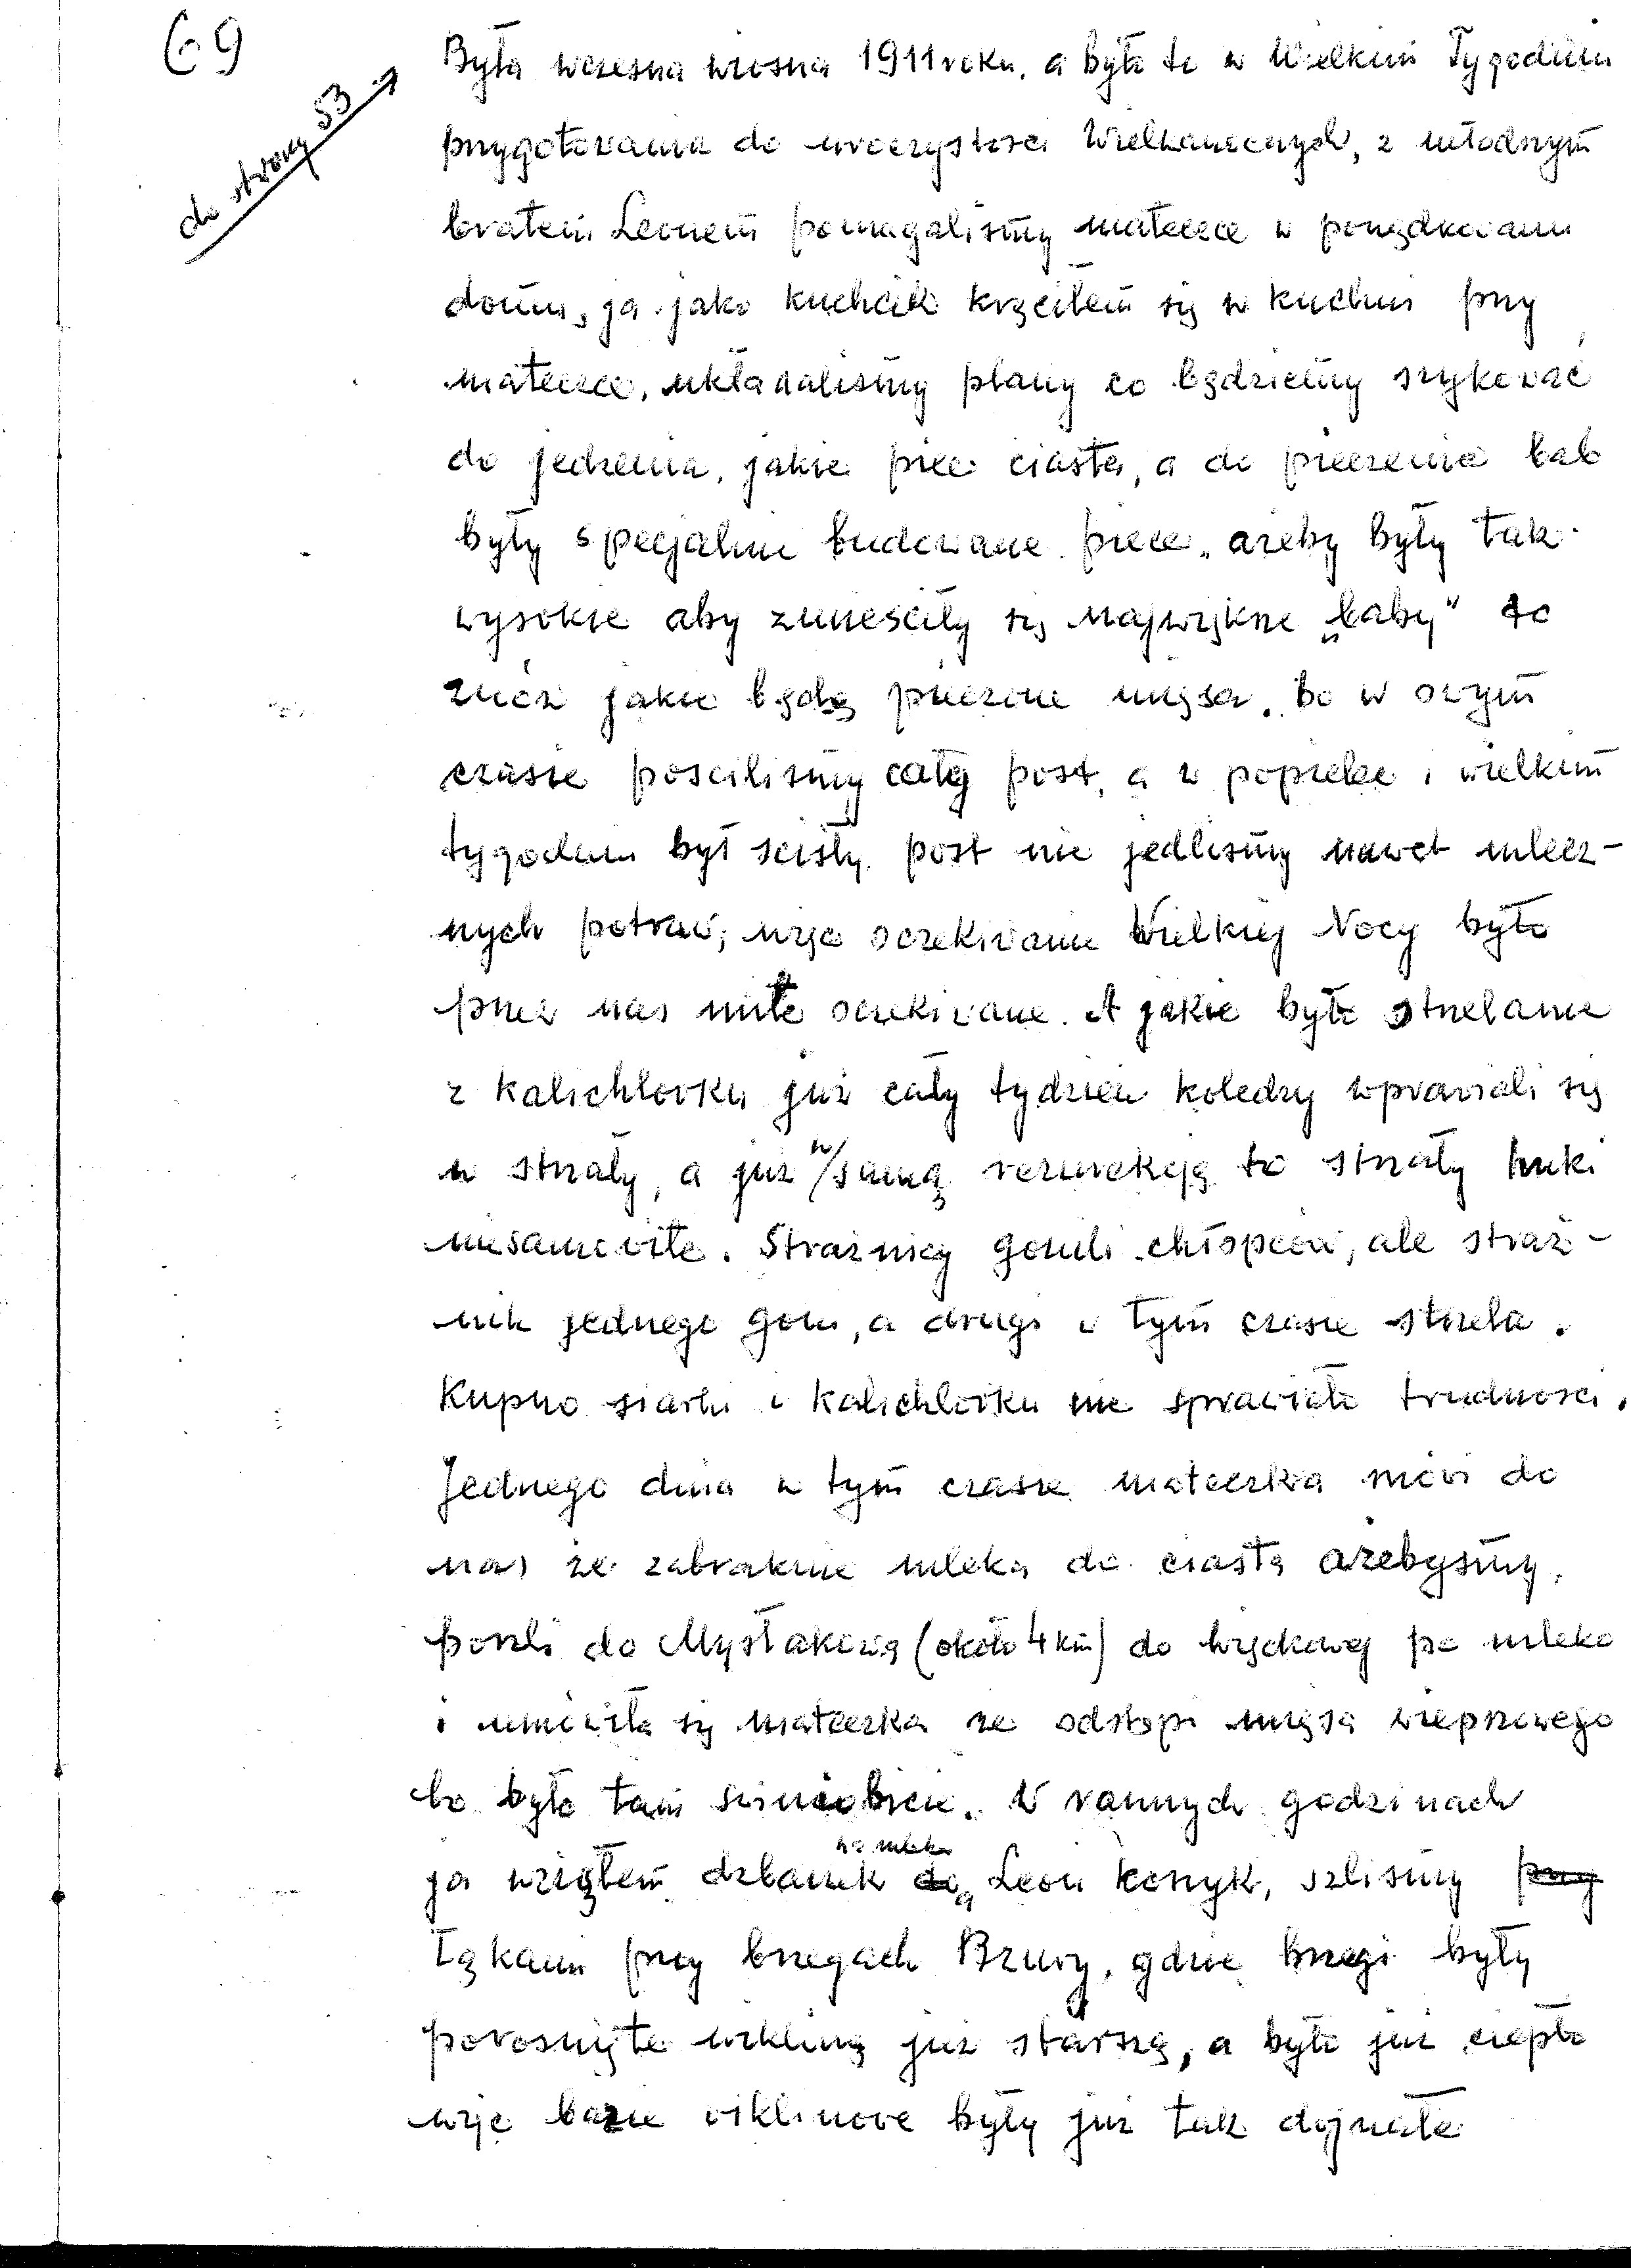 69
do strony 53
Była wczesna wiosna 1911 roku, a było to w Wielkim Tygodniu
przygotowania do uroczystości Wielkanocnych, z młodszym
bratem Leonem pomagaliśmy mateczce w porządkowaniu
domu, ja jako kuchcik kręciłem się w kuchni przy
mateczce, układaliśmy plany co będziemy szykować
do jedzenia, jakie piec ciasta, a do pieczenia bab
były specjalnie budowane piece, ażeby były tak
wysokie aby zmieściły się największe „baby" to
znów jakie będą pieczone mięsa, bo w owym
czasie pościliśmy cały post, a w popielec i wielkim
tygodniu był ścisły post nie jedliśmy nawet mlecz-
nych potraw, więc oczekiwanie Wielkiej Nocy było
przez nas mile oczekiwane. A jakie było strzelanie
z kalichlorku już cały tydzień koledzy wprawiali się
w strzały, a już w samą rezurekcję to strzały huki
niesamowite. Strażnicy gonili chłopców, ale straż-
nik jednego goni, a drugi w tym czasie strzela.
Kupno siarki i kalichlorku nie sprawiało trudności.
Jednego dnia w tym czasie mateczka mówi do
nas że zabraknie mleka do ciasta ażebyśmy
poszli do Mysłakowa (około 4 km) do Wyckowej po mleko
i umówiła się mateczka że odstąpi mięsa wieprzowego
bo było tam świniobicie. W rannych godzinach
ja wziąłem dzbanek na mleko a Leon koszyk, szliśmy przy
łąkami przy brzegach Bzury, gdzie brzegi były
porośnięte wikliną już starszą, a było już ciepło
więc bazie wiklinowe były już tak dojrzałe